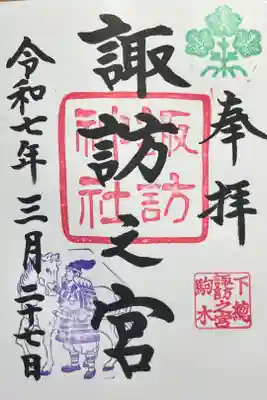 奉拝
諏訪之宮
諏訪
神社
令和七年三月二十七日
下總
諏訪之宮
駒木